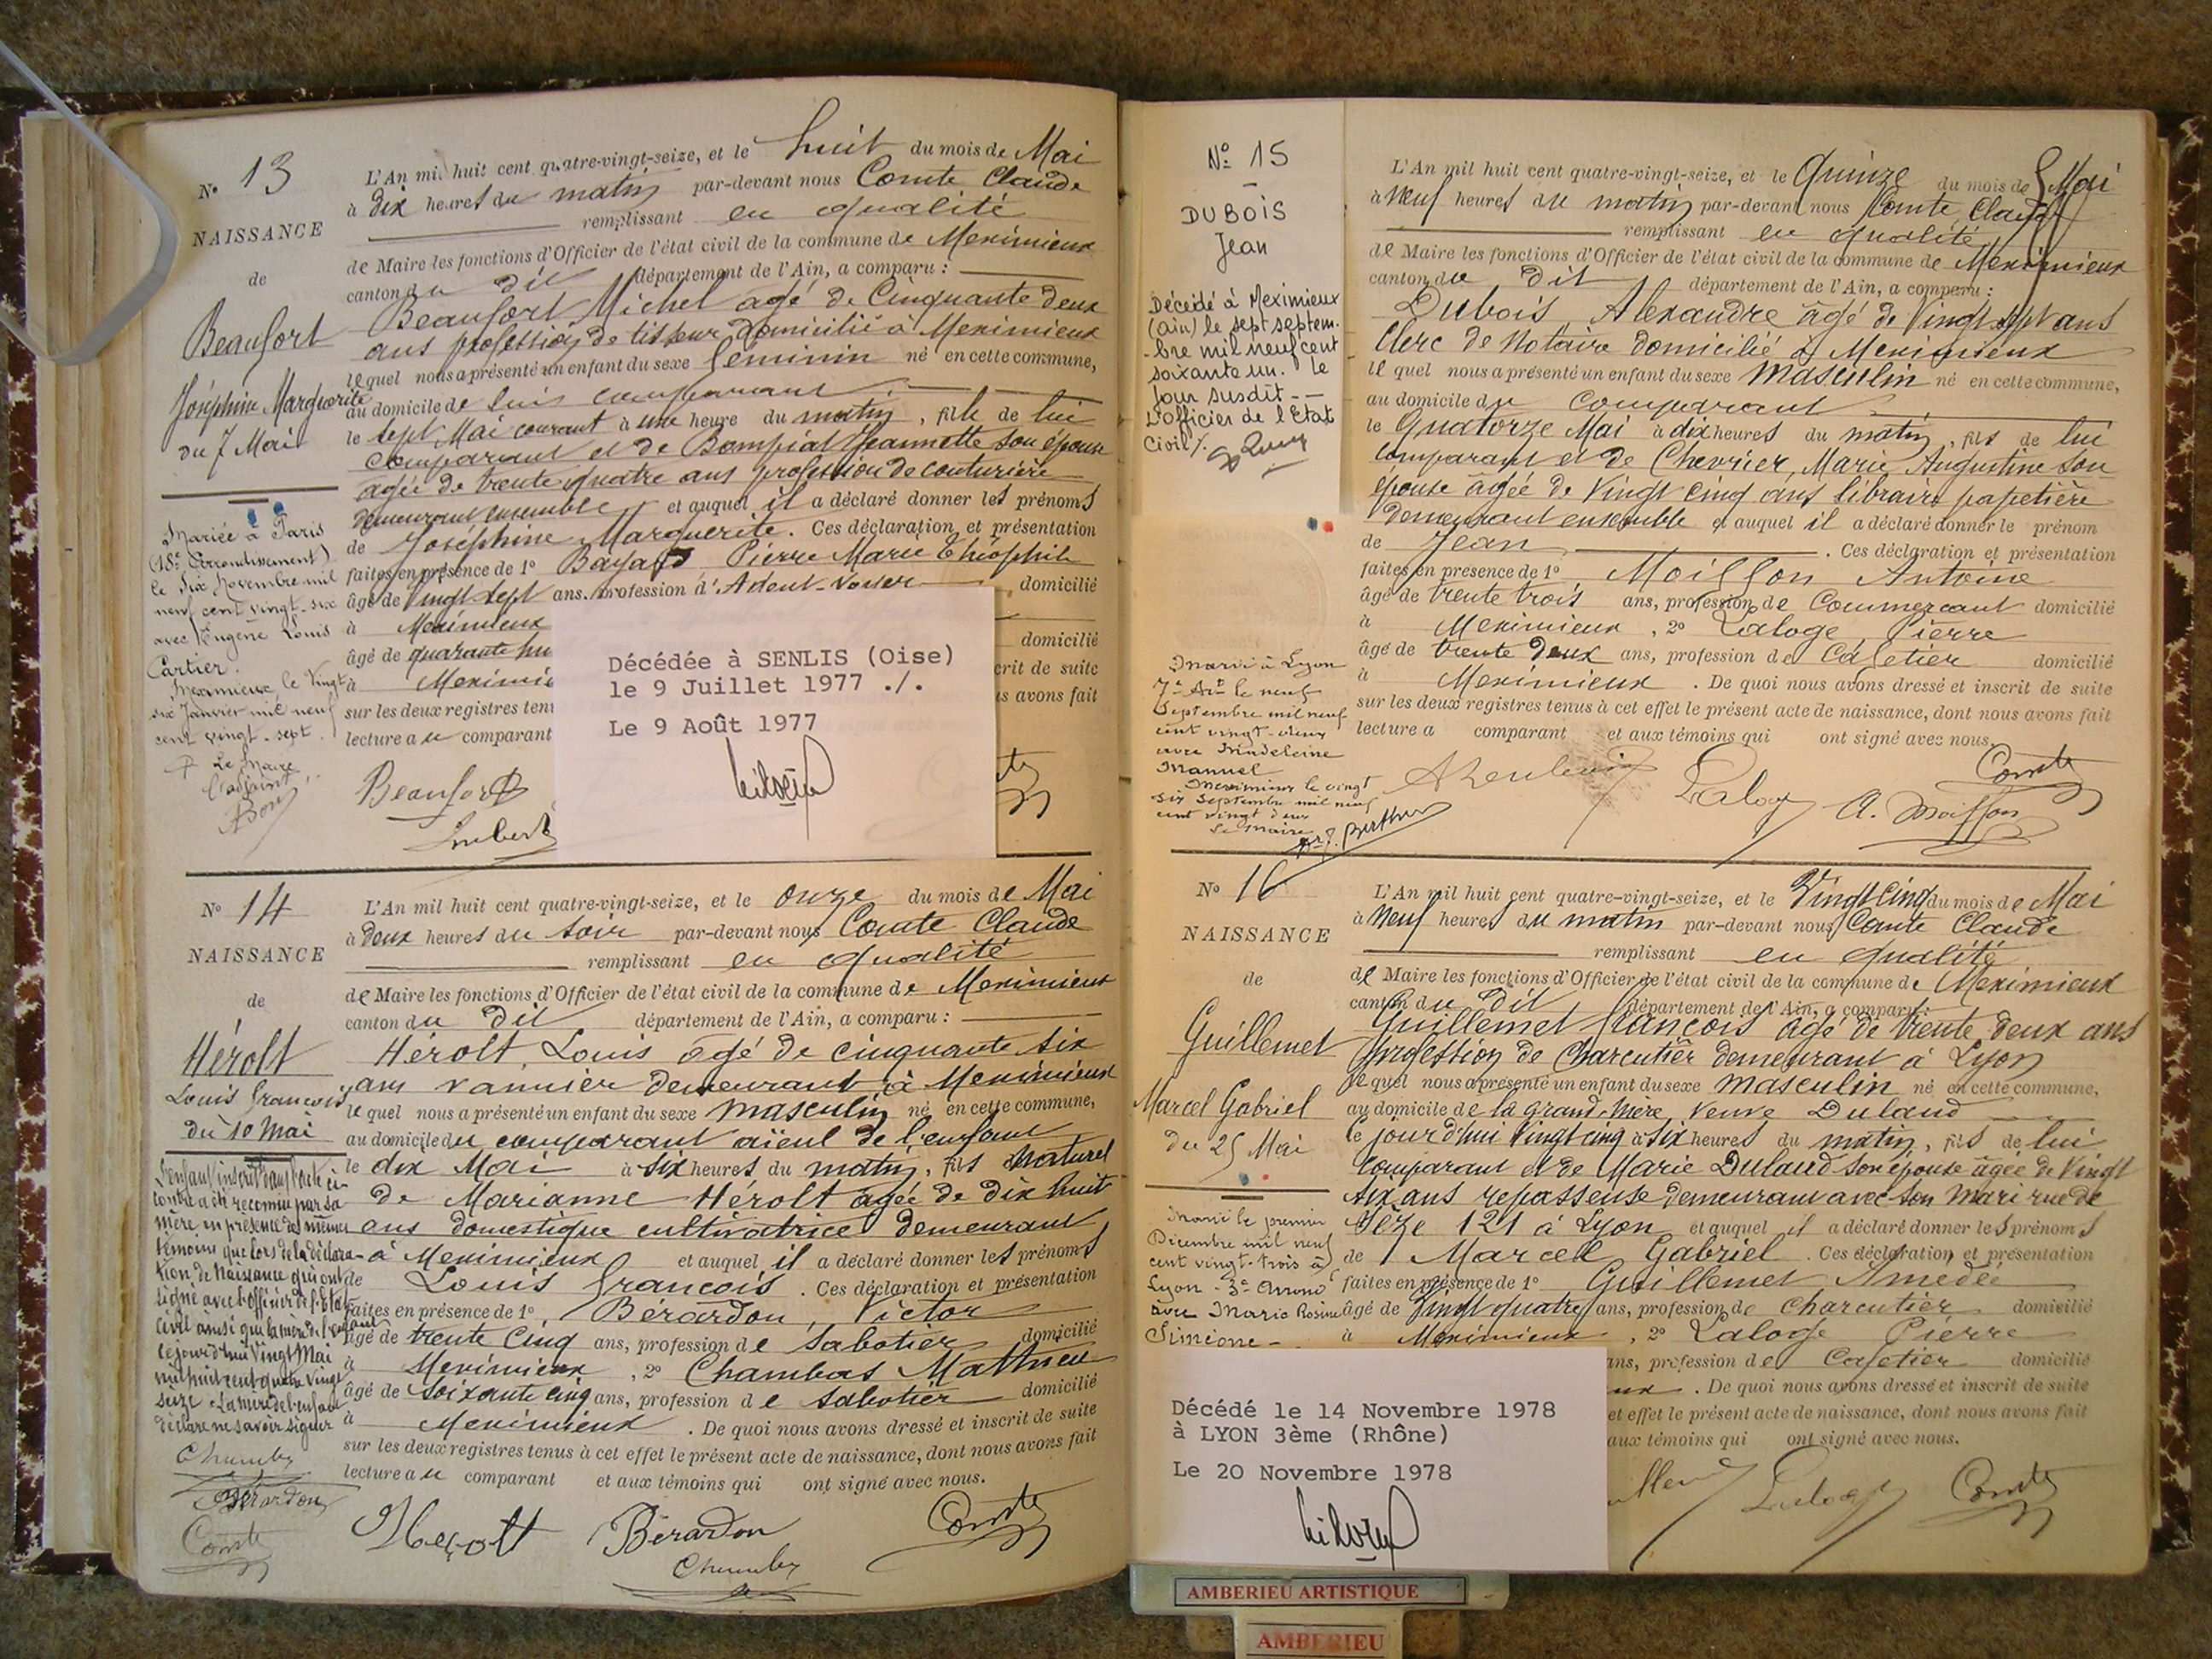 N° 13
NAISSANCE
de
Beaufort
Joséphine Marguerite
du 7 Mai
Mariée à Paris
(18e Arrondissement)
le Six Novembre mil
neuf cent vingt-six
avec Eugène Louis
Cartier.
Meximieux, le Vingt
six Janvier mil neuf
cent vingt-sept.
Le Maire
L'adjoint
L'An mil huit cent quatre-vingt-seize, et le huit du mois de Mai
à dix heures du matin par-devant nous Comte Claude
remplissant en qualité
de Maire les fonctions d'Officier de l'état civil de la commune de Meximieux
canton du dit département de l'Ain, a comparu :
Beaufort Michel agé de Cinquante deux
ans profession de tisseur domicilié à Meximieux
lequel nous a présenté un enfant du sexe féminin né en cette commune,
au domicile de lui comparant
le sept Mai courant à une heure du matin, fille de lui
comparant et de Bompiat Jeannette son épouse
agée de trente quatre ans profession de couturière
demeurant ensemble et auquel il a déclaré donner les prénoms
de Joséphine Marguerite. Ces déclaration et présentation
faites en présence de 1° Pierre Marie Théophile
âgé de Vingt sept ans, profession d'Adent-Voyer domicilié
à Meximieux
domicilié
âgé de quarante hu
crit de suite
à Meximie
us avons fait
sur les deux registres tenu
lecture a u comparant
Décédée à SENLIS (Oise)
le 9 Juillet 1977 ./.
Le 9 Août 1977
Beaufort
Imbert
N° 14
NAISSANCE
de
Hérolt
Louis François
du 10 Mai
L'enfant inscrit dans l'acte ci-
contre a été reconnu par sa
mère en présence des mêmes
témoins que lors de la déclara-
tion de Naissance qui ont
signé avec l'officier de l'Etat
Civil ainsi que la mère de l'enfant
Cejourd'hui Vingt Mai
mil huit cent quatre vingt
seize. La mère de l'enfant
déclare ne savoir signer
Chambas
Bérardon
Comte
L'An mil huit cent quatre-vingt-seize, et le onze du mois de Mai
à deux heures du soir par-devant nous Comte Claude
remplissant en qualité
de Maire les fonctions d'Officier de l'état civil de la commune de Meximieux
canton du dit département de l'Ain, a comparu :
Hérolt, Louis agé de cinquante six
ans vannier demeurant à Meximieux
lequel nous a présenté un enfant du sexe masculin né en cette commune,
au domicile du comparant aïeul de l'enfant
le dix Mai à six heures du matin, fils Naturel
de Marianne Hérolt agée de dix huit
ans domestique cultivatrice demeurant
à Meximieux et auquel il a déclaré donner les prénoms
de Louis François. Ces déclaration et présentation
faites en présence de 1° Bérardon, Victor
âgé de trente cinq ans, profession de Sabotier domicilié
à Meximieux, 2° Chambas Mathieu
âgé de soixante cinq ans, profession de sabotier domicilié
à Meximieux. De quoi nous avons dressé et inscrit de suite
sur les deux registres tenus à cet effet le présent acte de naissance, dont nous avons fait
lecture a u comparant et aux témoins qui ont signé avec nous.
Herolt Bérardon Comte
Chambas
N° 15
DUBOIS
Jean
Décédé à Meximieux
(Ain) le sept septem-
-bre mil neuf cent
soixante un. Le
jour susdit.--
L'officier de l'Etat
Civil %.
Marié à Lyon
7e Art le neuf
Septembre mil neuf
cent vingt-deux
avec Madeleine
Manuel
Meximieux le vingt
six septembre mil neuf
cent vingt deux
Le Maire
L'An mil huit cent quatre-vingt-seize, et le Quinze du mois de Mai
à Neuf heures du matin par-devant nous Comte Claude
remplissant en qualité
de Maire les fonctions d'Officier de l'état civil de la commune de Meximieux
canton du Dit département de l'Ain, a comparu :
Dubois, Alexandre âgé de Vingt sept ans
Clerc de Notaire domicilié à Meximieux
lequel nous a présenté un enfant du sexe Masculin né en cette commune,
au domicile du comparant
le Quatorze Mai à dix heures du matin, fils de lui
comparant et de Chevrier, Marie Augustine son
épouse âgée de Vingt cinq ans libraire papetière
demeurant ensemble et auquel il a déclaré donner le prénom
de Jean. Ces déclaration et présentation
faites en présence de 1° Moiffon Antoine
âgé de trente trois ans, profession de Commerçant domicilié
à Meximieux, 2° Laloge, Pierre
âgé de trente deux ans, profession de Cafetier domicilié
à Meximieux. De quoi nous avons dressé et inscrit de suite
sur les deux registres tenus à cet effet le présent acte de naissance, dont nous avons fait
lecture a comparant et aux témoins qui ont signé avec nous.
Laloge A. Moiffon Comte
N° 16
NAISSANCE
de
Guillemet
Marcel Gabriel
du 25 Mai
Marié le premier
Décembre mil neuf
cent vingt-trois à
Lyon - 3e Arrond
avec Marie Rosine
Simeone -
L'An mil huit cent quatre-vingt-seize, et le Vingt cinq du mois de Mai
à Neuf heures du matin par-devant nous Comte Claude
remplissant en qualité
de Maire les fonctions d'Officier de l'état civil de la commune de Meximieux
canton du Dit département de l'Ain, a comparu :
Guillemet François âgé de trente deux ans
profession de Charcutier demeurant à Lyon
lequel nous a présenté un enfant du sexe masculin né en cette commune,
au domicile de la grand-Mère, Veuve Duland
le jourd'hui Vingt cinq à six heures du matin, fils de lui
comparant et de Marie Duland son épouse âgée de Vingt
six ans repasseuse demeurant avec son mari rue de
Sèze 121 à Lyon et auquel il a déclaré donner les prénoms
de Marcel Gabriel. Ces déclaration et présentation
faites en présence de 1° Guillemet Amédée
âgé de Vingt quatre ans, profession de Charcutier domicilié
à Meximieux, 2° Laloge Pierre
ans, profession de Cafetier domicilié
ux. De quoi nous avons dressé et inscrit de suite
et effet le présent acte de naissance, dont nous avons fait
aux témoins qui ont signé avec nous.
Décédé le 14 Novembre 1978
à LYON 3ème (Rhône)
Le 20 Novembre 1978
Laloge Comte
AMBERIEU ARTISTIQUE
AMBERIEU